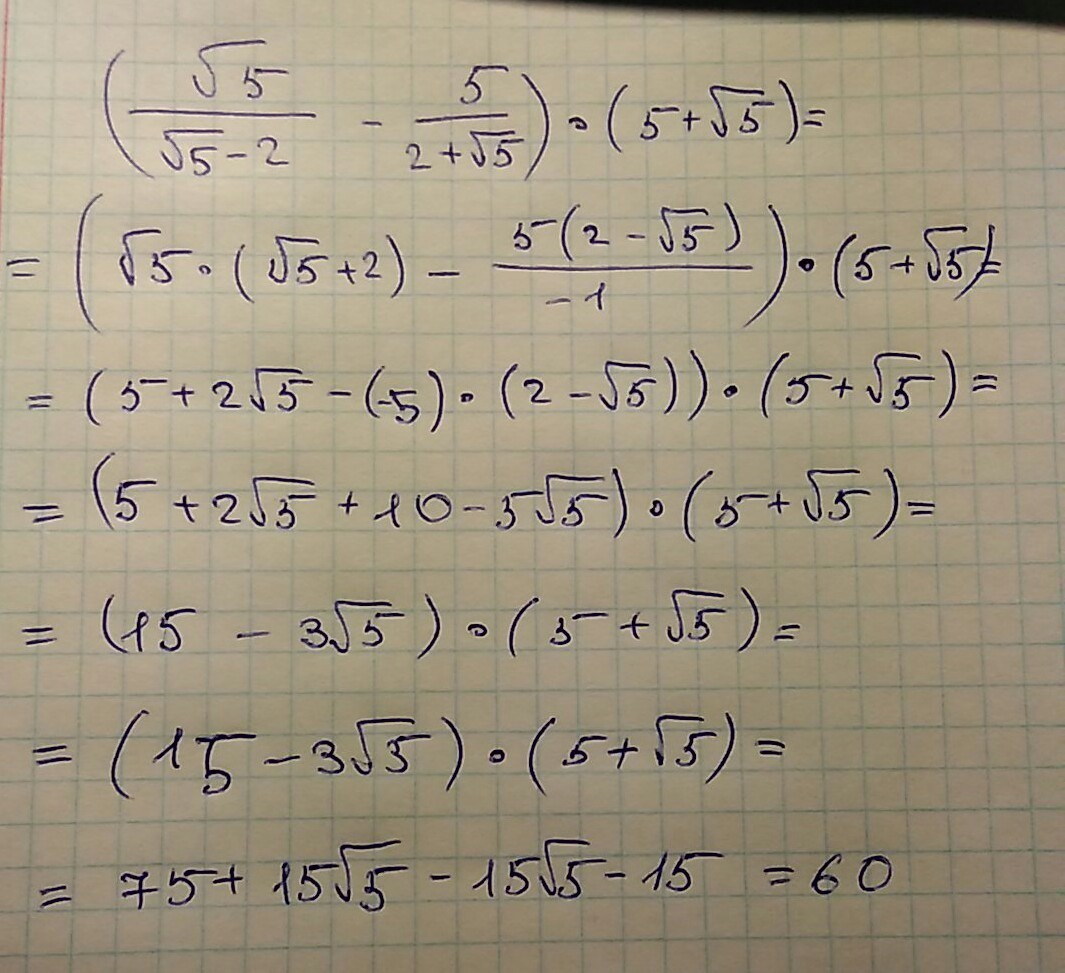 (√5/(√5-2) - 5/(2+√5)) • (5+√5)=
= (√5 • (√5+2) - 5(2-√5)/-1) • (5+√5)=
= (5+2√5-(-5) • (2-√5)) • (5+√5)=
= (5+2√5+10-5√5) • (5+√5)=
= (15 - 3√5) • (5+√5)=
= (15-3√5) • (5+√5)=
= 75+15√5-15√5-15 =60